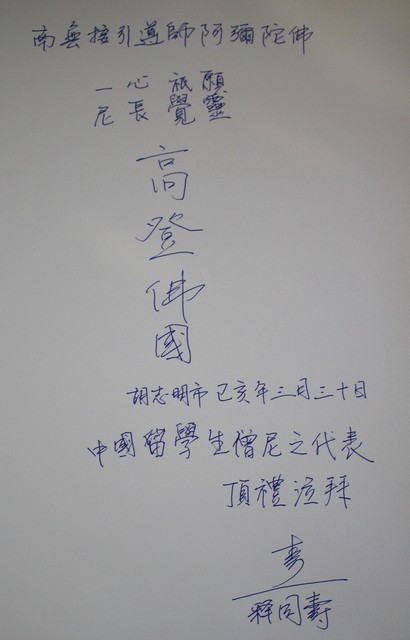 南無接引導師阿彌陀佛
一心祇願
尼長覺靈
高
登
佛
國
胡志明市己亥年三月三十日
中國留學生僧尼之代表
頂禮泣拜
壽
釋同壽